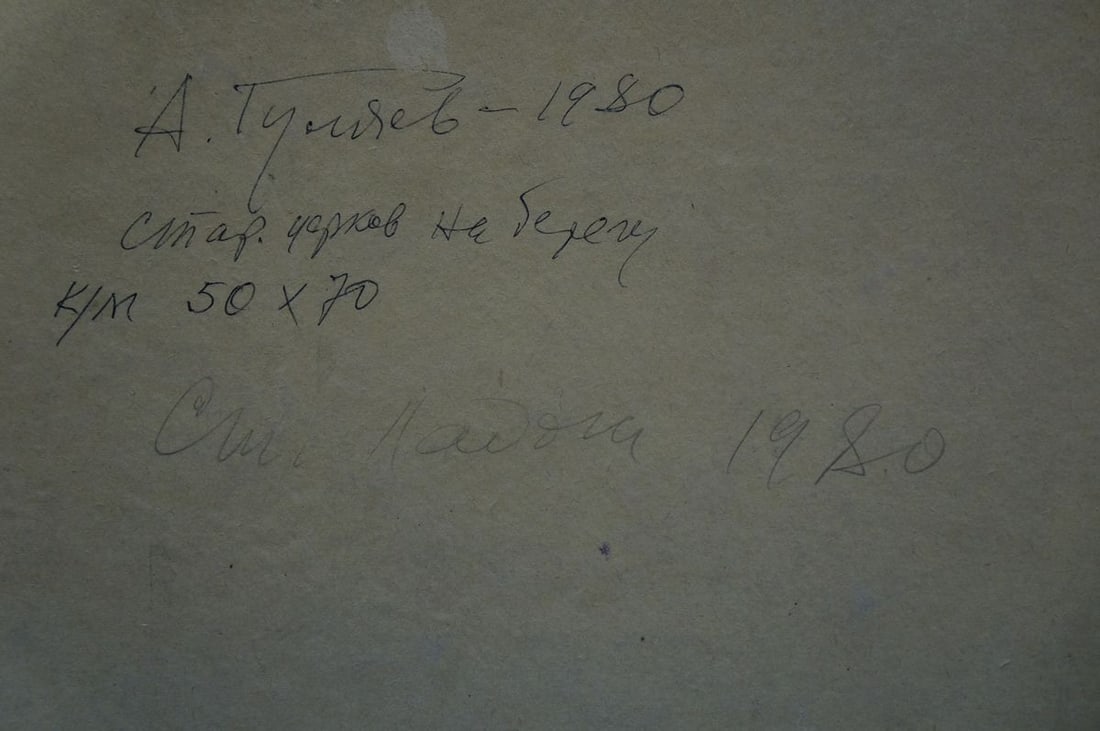 А. Гуляев - 1980
стар. церков на берегу
к/м 50 х 70
Ст. Ладога 1980